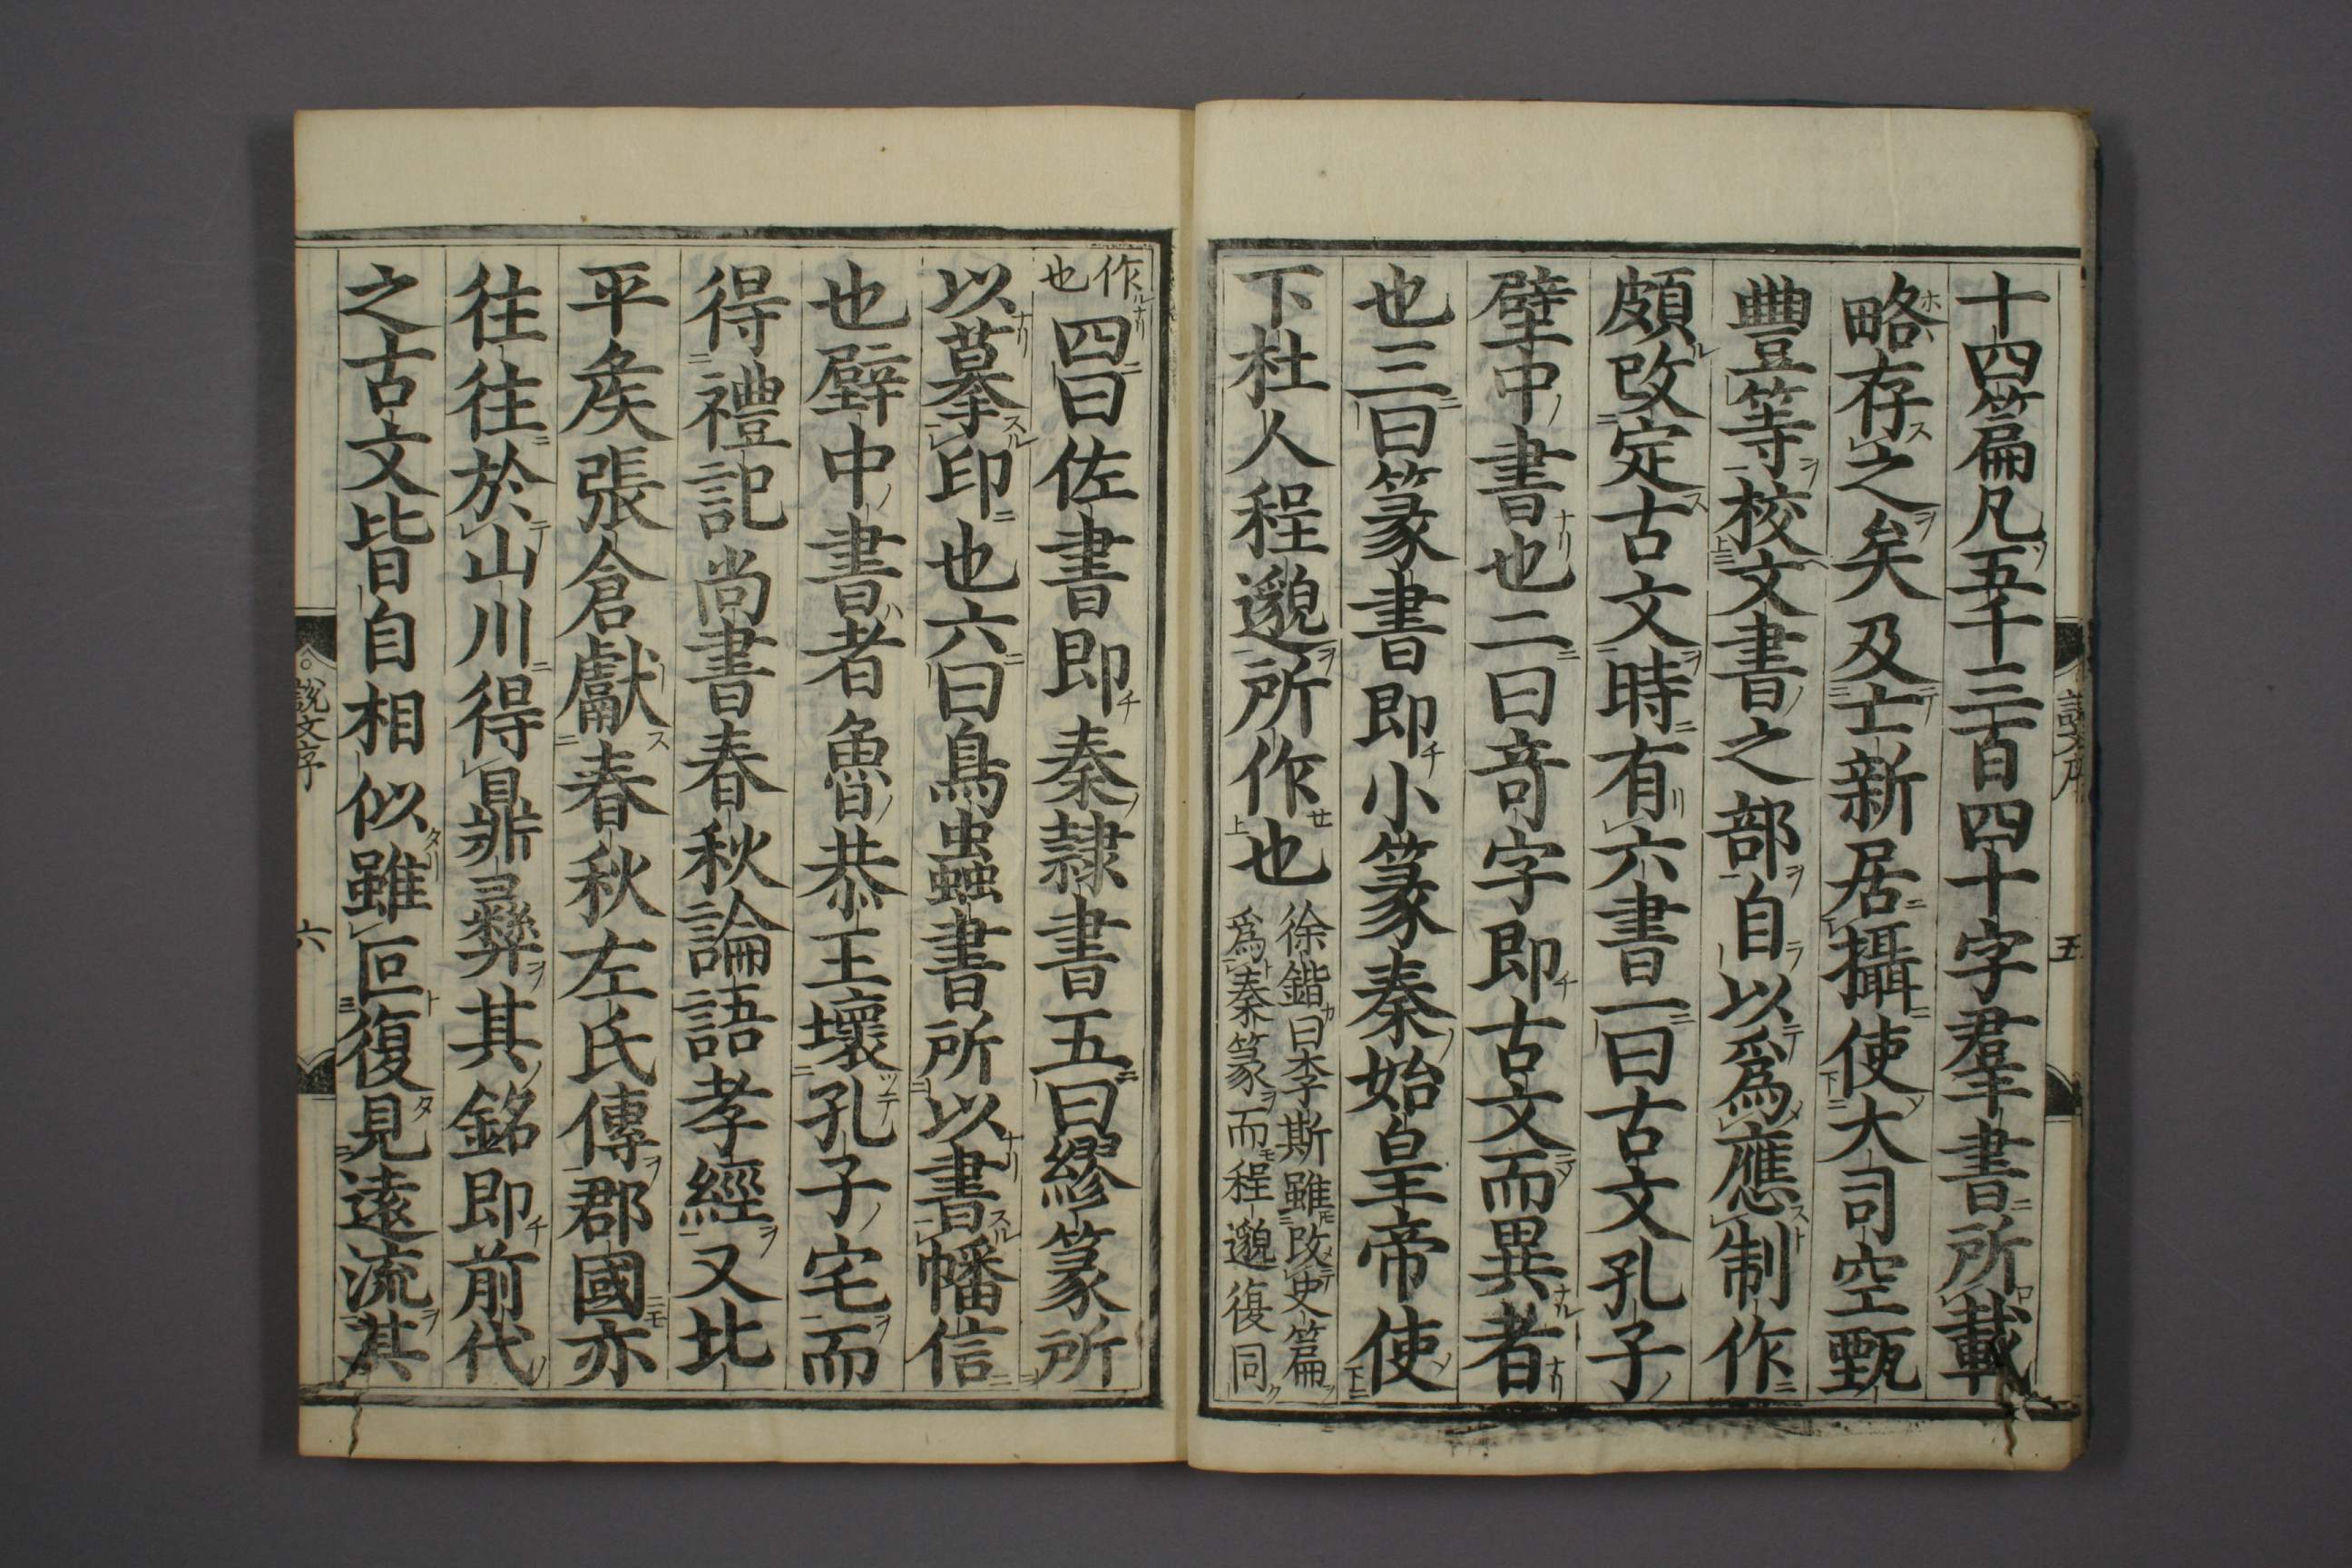 十四篇凡五千三百四十字羣書所載
略存之矣及亡新居攝使大司空甄
豐等校文書之部自以爲應制作
頗改定古文時有六書一曰古文孔子
壁中書也二曰奇字即古文而異者
也三曰篆書即小篆秦始皇帝使
下杜人程邈所作也徐鍇曰李斯雖改史篇
爲秦篆而程邈復同
作
也四曰佐書即秦隸書五曰繆篆所
以摹印也六曰鳥蟲書所以書幡信
也壁中書者魯恭王壞孔子宅而
得禮記尚書春秋論語孝經又北
平矦張倉獻春秋左氏傳郡國亦
往往於山川得鼎彝其銘即前代
之古文皆自相似雖叵復見遠流其
說文序 六